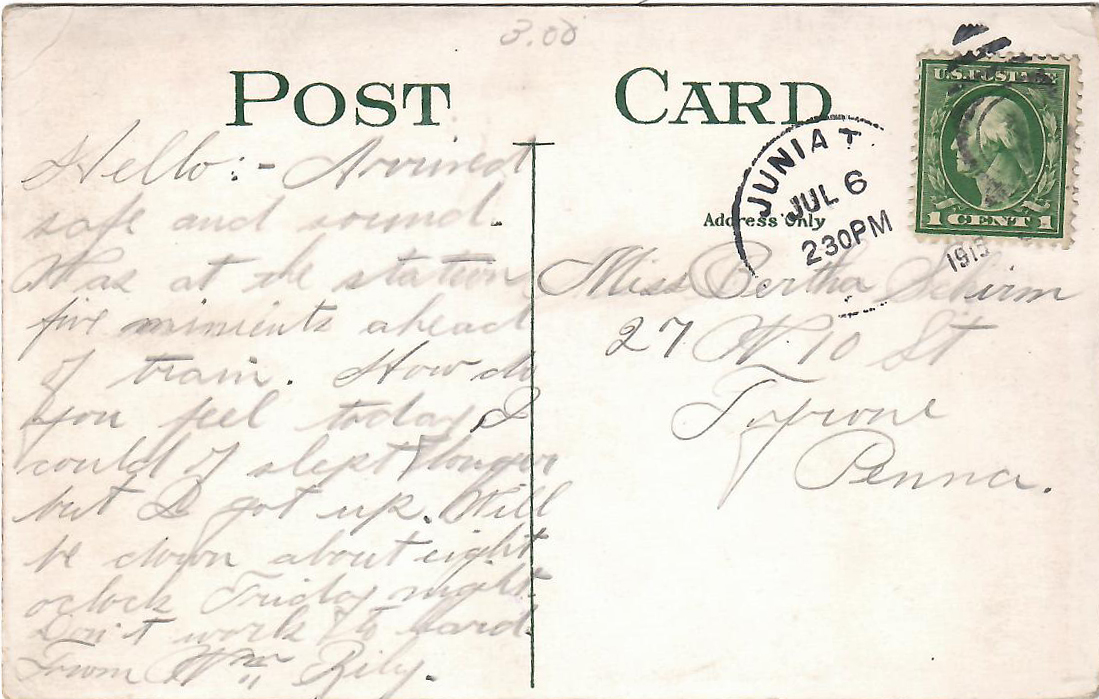 3.00
POST CARD
U.S. POSTAGE
1 CENT 1
JUNIAT
JUL 6
2 30 PM
1915
Address Only
Hello:- Arrived
safe and sound.
Was at the station
five minients ahead
of train. How do
you feel today I
could of slept longer
but I got up. Will
be down about eight
oclock Friday night.
Don't work to hard.
From Wm Rily.
Miss Bertha Schirm
27 W. 10 St
Tyrone
Penna.